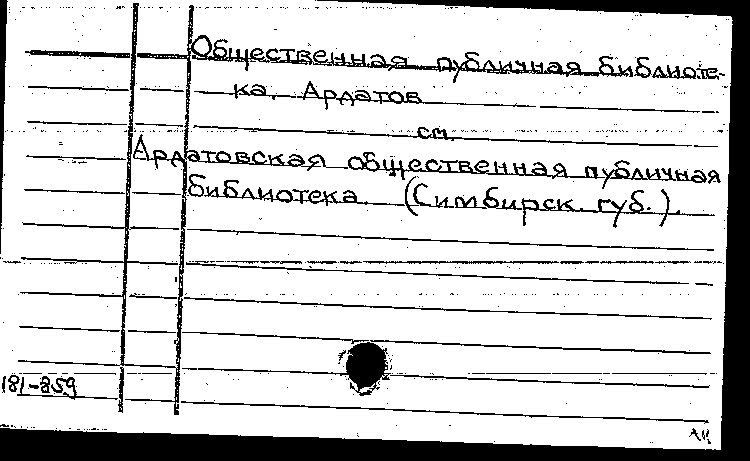 Общественная публичная библиоте-
ка. Ардатов
см.
Ардатовская общественная публичная
библиотека. (Симбирск. губ.).
181-859